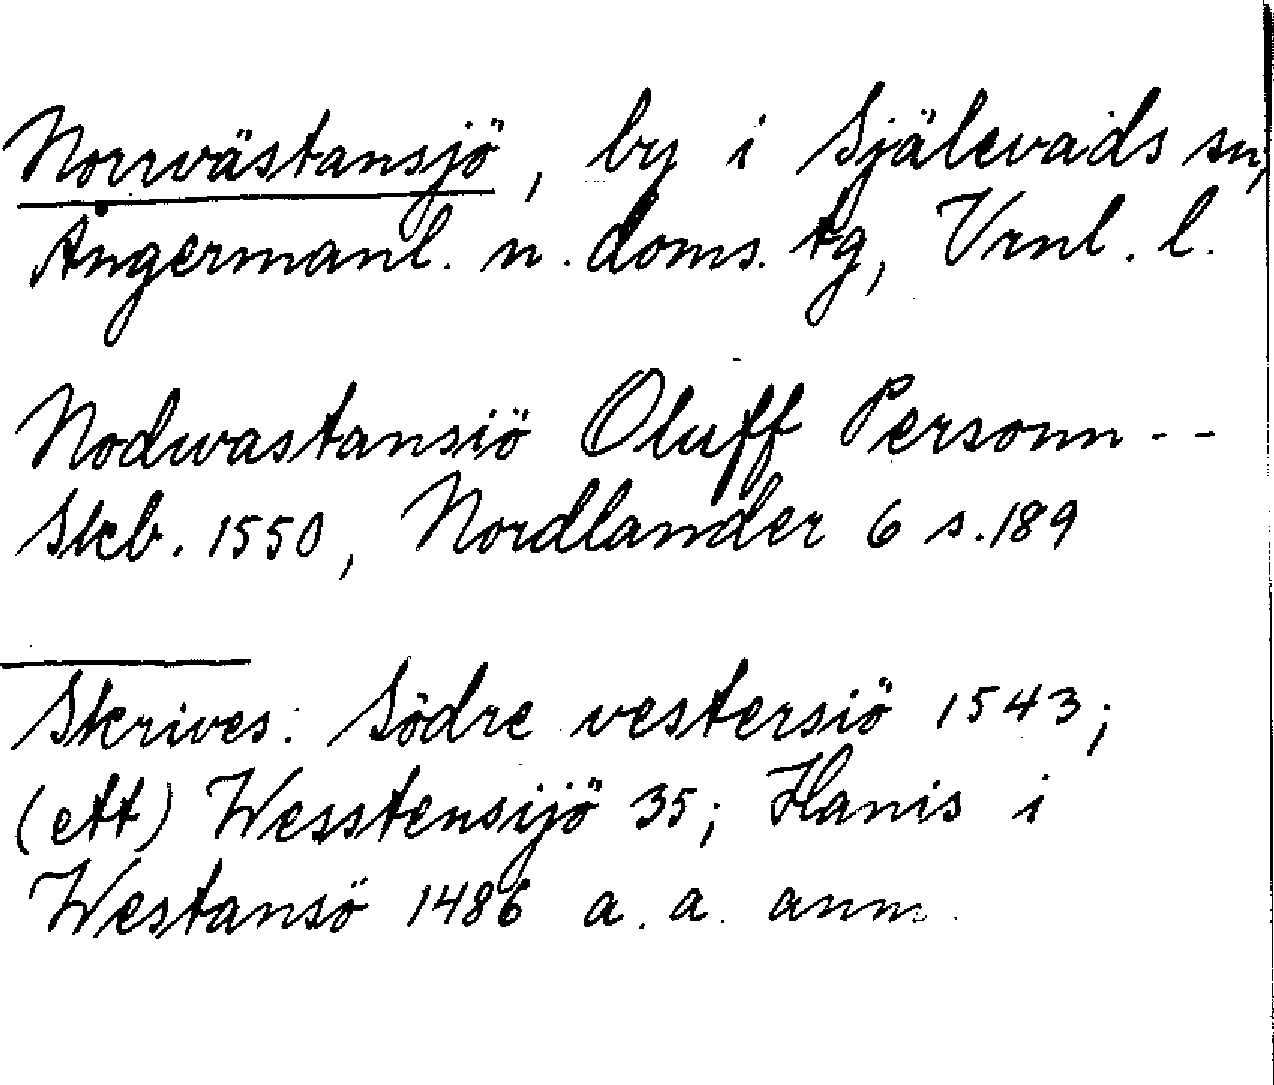 Norrvästansjö, by i Själevads sn,
Ångermanl. n. doms. tg, Vrnl. l.
Nodwastansiö Oluff Personn--
Skb. 1550, Nordlander 6 s.189
Skrives: Södre vestersiö 1543;
(ett) Wesstensijö 35; Hanis i
Westansö 1486 a. a. anm.